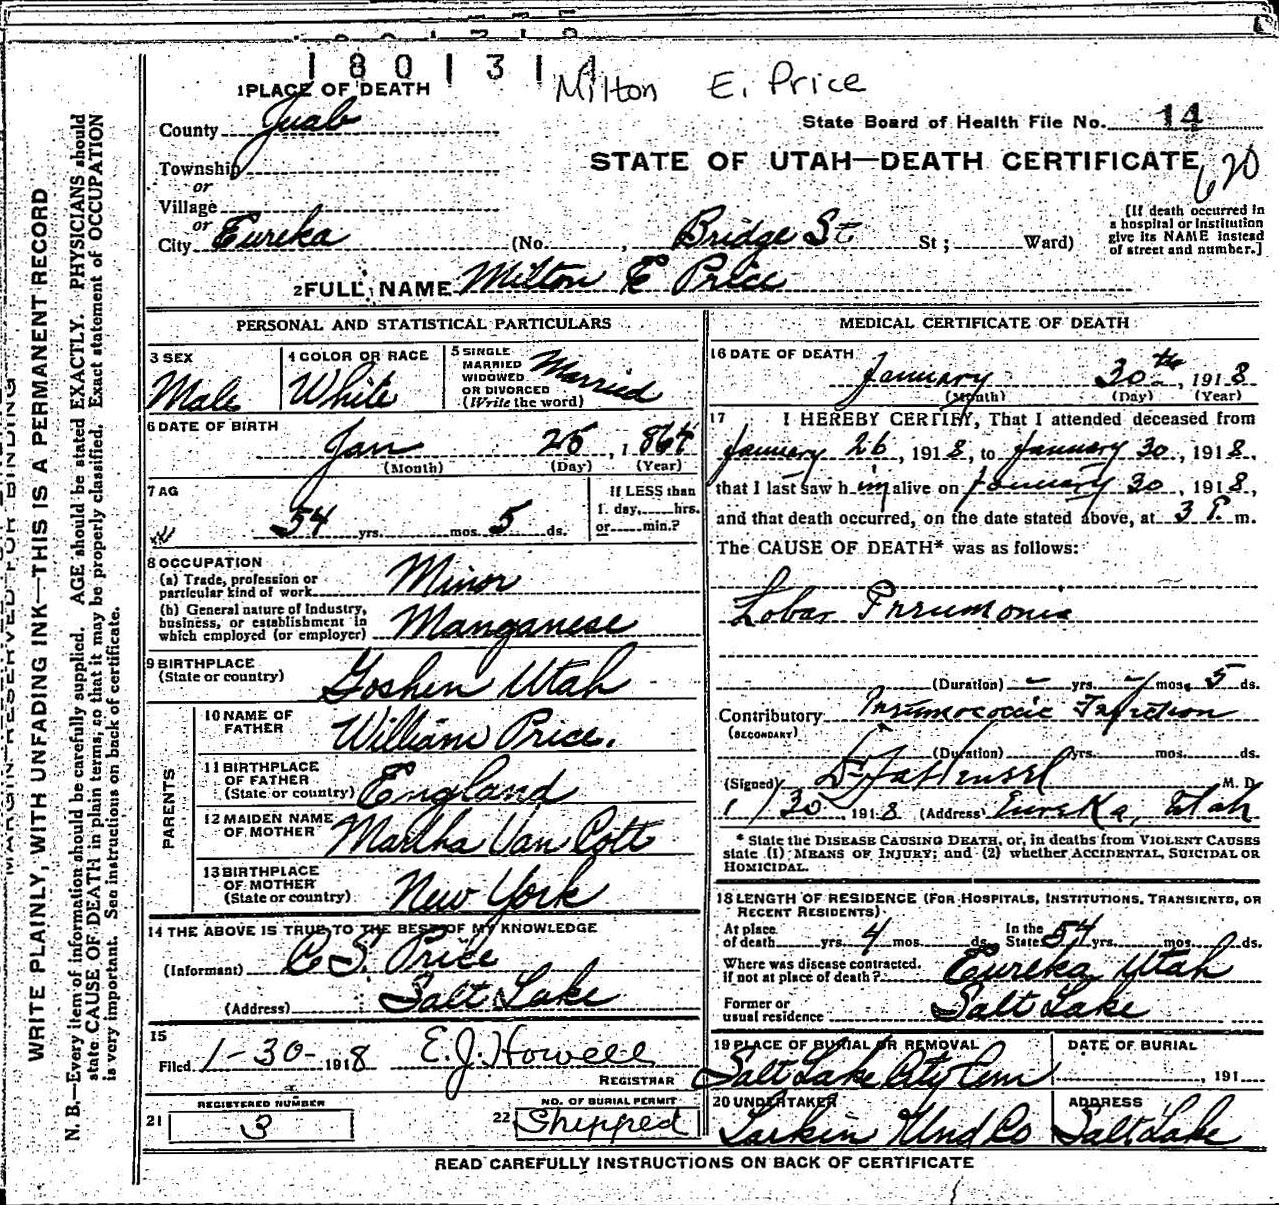 1801314
Milton E. Price
1 PLACE OF DEATH
County Juab
State Board of Health File No. 14
Township
STATE OF UTAH—DEATH CERTIFICATE
620
or
Village
or
City Eureka (No. , Bridge St. St; Ward)
[If death occurred in
a hospital or institution
give its NAME instead
of street and number.]
2 FULL NAME Milton E Price
PERSONAL AND STATISTICAL PARTICULARS
3 SEX
Male
4 COLOR OR RACE
White
5 SINGLE
MARRIED
WIDOWED
OR DIVORCED
(Write the word)
Married
6 DATE OF BIRTH
Jan 25, 1864
(Month) (Day) (Year)
7 AG
54 yrs. mos. 5 ds.
If LESS than
1 day, hrs.
or min.?
8 OCCUPATION
(a) Trade, profession or
particular kind of work Minor
(b) General nature of Industry,
business, or establishment in
which employed (or employer) Manganese
9 BIRTHPLACE
(State or country) Goshen Utah
PARENTS
10 NAME OF
FATHER William Price.
11 BIRTHPLACE
OF FATHER
(State or country) England
12 MAIDEN NAME
OF MOTHER Martha Van Cott
13 BIRTHPLACE
OF MOTHER
(State or country) New York
14 THE ABOVE IS TRUE TO THE BEST OF MY KNOWLEDGE
(Informant) C. S. Price
(Address) Salt Lake
15
Filed 1-30- 1918 E. J. Howell
REGISTRAR
REGISTERED NUMBER
21 3
NO. OF BURIAL PERMIT
22 Shipped
MEDICAL CERTIFICATE OF DEATH
16 DATE OF DEATH
January 30th, 1918
(Month) (Day) (Year)
17 I HEREBY CERTIFY, That I attended deceased from
January 26, 1918, to January 30, 1918,
that I last saw h im alive on January 30, 1918,
and that death occurred, on the date stated above, at 3 P. m.
The CAUSE OF DEATH* was as follows:
Lobar Pneumonia
(Duration) – yrs. – mos. 5 ds.
Contributory Pneumococcic Infection
(SECONDARY)
(Duration) yrs. mos. ds.
(Signed) M. D.
1/30 1918 (Address) Eureka, Utah
* State the DISEASE CAUSING DEATH, or, in deaths from VIOLENT CAUSES
state (1) MEANS OF INJURY; and (2) whether ACCIDENTAL, SUICIDAL OR
HOMICIDAL.
18 LENGTH OF RESIDENCE (FOR HOSPITALS, INSTITUTIONS, TRANSIENTS, OR
RECENT RESIDENTS).
At place
of death yrs. 4 mos. ds. In the State 54 yrs. mos. ds.
Where was disease contracted.
If not at place of death? Eureka Utah
Former or
usual residence Salt Lake
19 PLACE OF BURIAL OR REMOVAL
Salt Lake City Cem
DATE OF BURIAL
, 191
20 UNDERTAKER
Larkin Und Co
ADDRESS
Salt Lake
READ CAREFULLY INSTRUCTIONS ON BACK OF CERTIFICATE
MARGIN RESERVED FOR BINDING
WRITE PLAINLY, WITH UNFADING INK—THIS IS A PERMANENT RECORD
N. B.—Every item of information should be carefully supplied. AGE should be stated EXACTLY. PHYSICIANS should
state CAUSE OF DEATH in plain terms, so that it may be properly classified. Exact statement of OCCUPATION
is very important. See instructions on back of certificate.